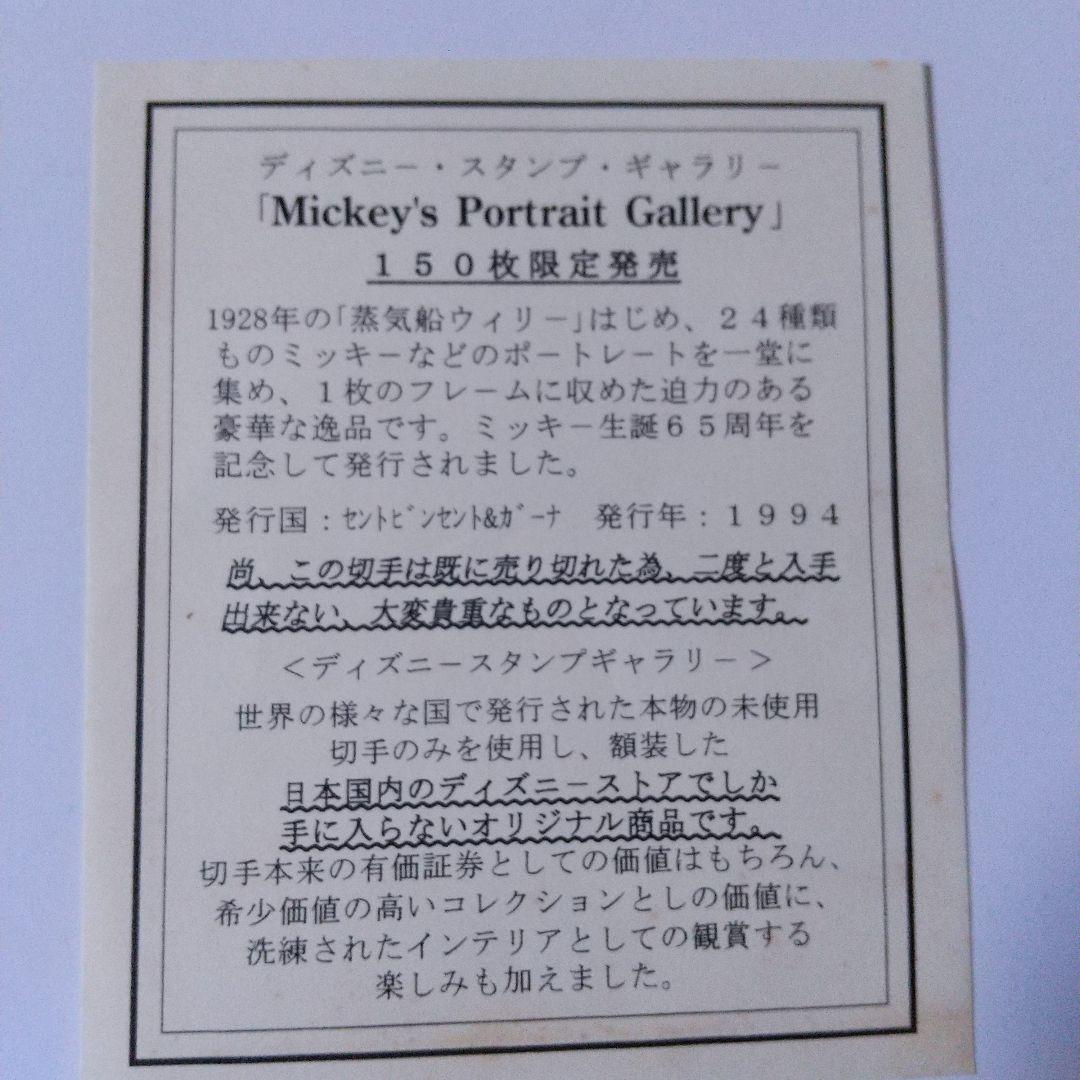 ディズニー・スタンプ・ギャラリー
「Mickey's Portrait Gallery」
１５０枚限定発売
1928年の「蒸気船ウィリー」はじめ、２４種類
ものミッキーなどのポートレートを一堂に
集め、１枚のフレームに収めた迫力のある
豪華な逸品です。ミッキー生誕６５周年を
記念して発行されました。
発行国：ｾﾝﾄﾋﾞﾝｾﾝﾄ&ｶﾞｰﾅ　発行年：１９９４
尚、この切手は既に売り切れた為、二度と入手
出来ない、大変貴重なものとなっています。
＜ディズニースタンプギャラリー＞
世界の様々な国で発行された本物の未使用
切手のみを使用し、額装した
日本国内のディズニーストアでしか
手に入らないオリジナル商品です。
切手本来の有価証券としての価値はもちろん、
希少価値の高いコレクションとしの価値に、
洗練されたインテリアとしての観賞する
楽しみも加えました。